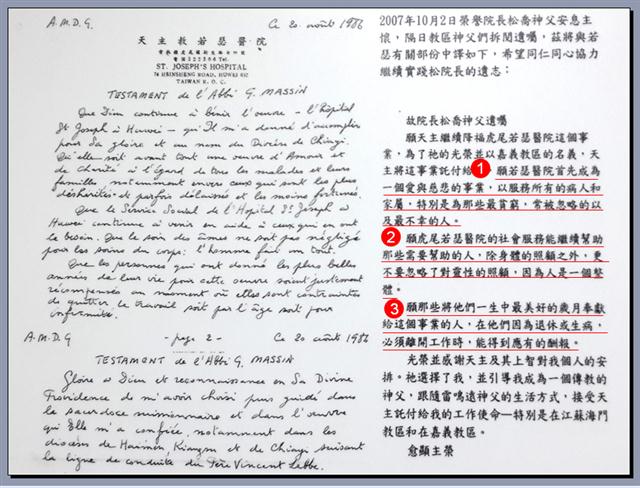 A.M.D.G.
Ce 20. août 1986
天主教若瑟醫院
ST. JOSEPH'S HOSPITAL
74 HSINSHENG ROAD, HUWEI 632
TAIWAN R. O. C.
TESTAMENT de l'Abbé G. MASSIN
Que Dieu continue à bénir l'œuvre - l'hôpital
St Joseph à Huwei - qu'Il m'a donné d'accomplir
pour Sa gloire et au nom du Diocèse de Chiayi.
Qu'elle soit avant tout une œuvre d'Amour et
de charité à l'égard de tous les malades et leurs
familles notamment envers ceux qui sont les plus
déshérités et parfois délaissés et les moins fortunés.
Que le Service Social de l'Hôpital St Joseph à
Huwei continue à venir en aide à ceux qui en ont
le besoin. Que le soin des âmes ne soit pas négligé
pour les soins du corps: l'homme fait un tout.
Que les personnes qui ont donné les plus belles
années de leur vie pour cette œuvre soient justement
récompensées au moment où elles sont contraintes
de quitter le travail soit par l'âge soit par
infirmité.
A.M.D.G
- page 2 -
Ce 20 août 1986
TESTAMENT de l'Abbé G. MASSIN
Gloire à Dieu et reconnaissance en Sa Divine
Providence de m'avoir choisi puis guidé dans
le sacerdoce missionnaire et dans l'œuvre
qu'Elle m'a confiée, notamment dans les
diocèses de Haimen, Kiangsu et de Chiayi suivant
la ligne de conduite du Père Vincent Lebbe.
2007年10月2日榮譽院長松喬神父安息主
懷，隔日教區神父們拆閱遺囑，茲將與若
瑟有關部份中譯如下，希望同仁同心協力
繼續實踐松院長的遺志：
故院長松喬神父遺囑
願天主繼續降福虎尾若瑟醫院這個事
業，為了祂的光榮並以嘉義教區的名義，天
主將這事業託付給 1 願若瑟醫院首先成為
一個愛與慈悲的事業，以服務所有的病人和
家屬，特別是為那些最貧窮，常被忽略的以
及最不幸的人。
2 願虎尾若瑟醫院的社會服務能繼續幫助
那些需要幫助的人，除身體的照顧之外，更
不要忽略了對靈性的照顧，因為人是一個整
體。
3 願那些將他們一生中最美好的歲月奉獻
給這個事業的人，在他們因為退休或生病，
必須離開工作時，能得到應有的酬報。
光榮並感謝天主及其上智對我個人的安
排。祂選擇了我，並引導我成為一個傳教的
神父，跟隨雷鳴遠神父的生活方式，接受天
主託付給我的工作使命—特別是在江蘇海門
教區和在嘉義教區。
愈顯主榮